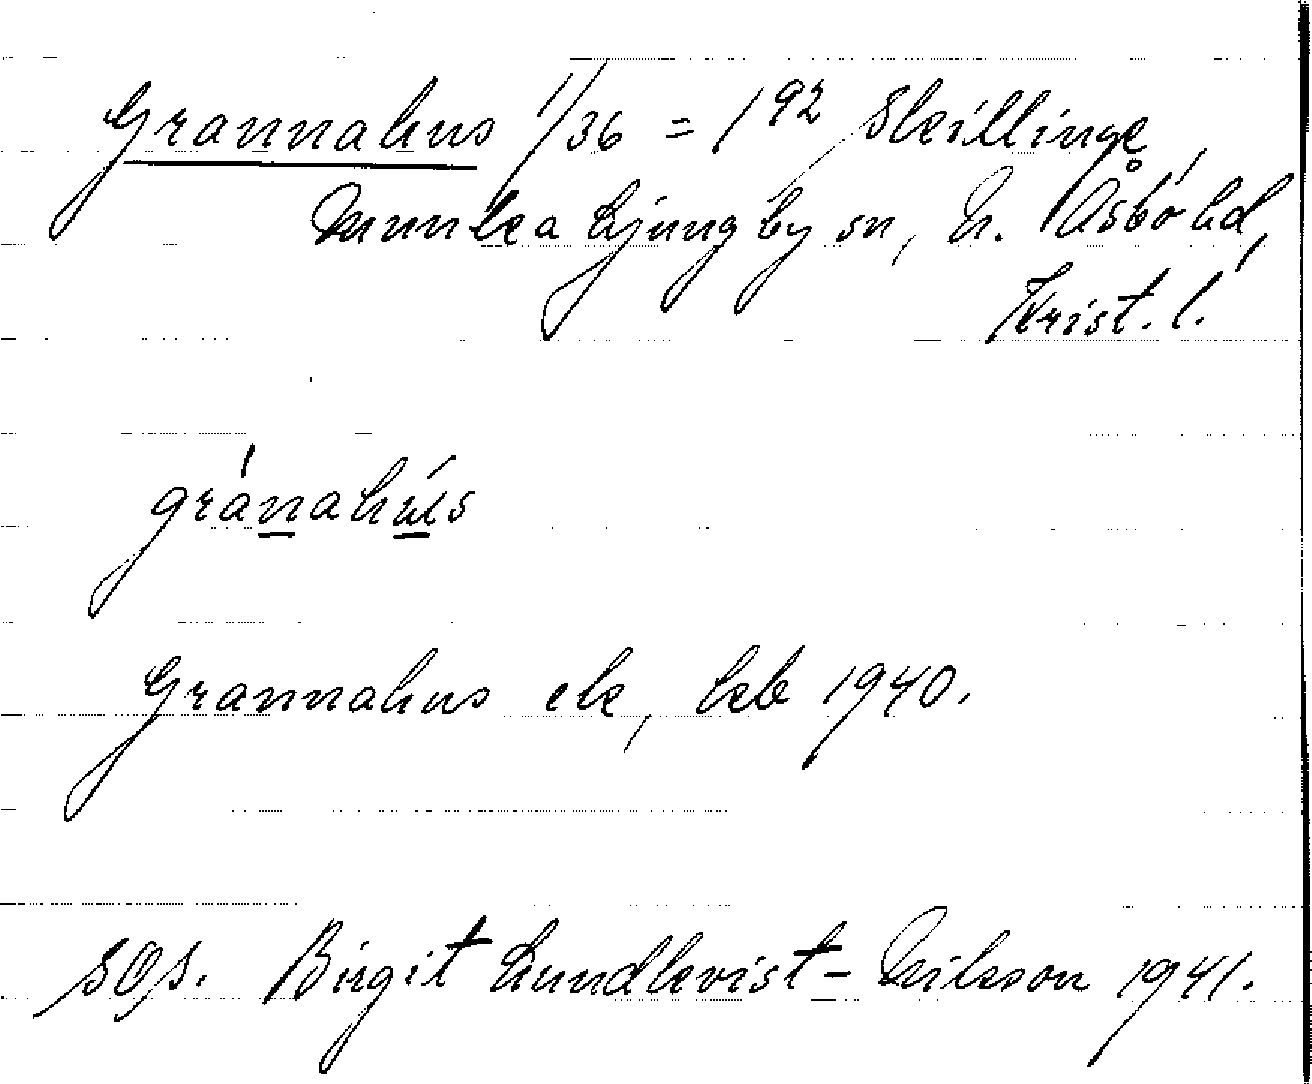 Grannahus 1/36 = 1⁹² Skillinge,
Munka Ljungby sn, N. Åsbo hd,
Krist. l.
gránahús
Grannahus ek, kbl 1940.
sOs. Birgit Lundkvist-Nilsson 1941.